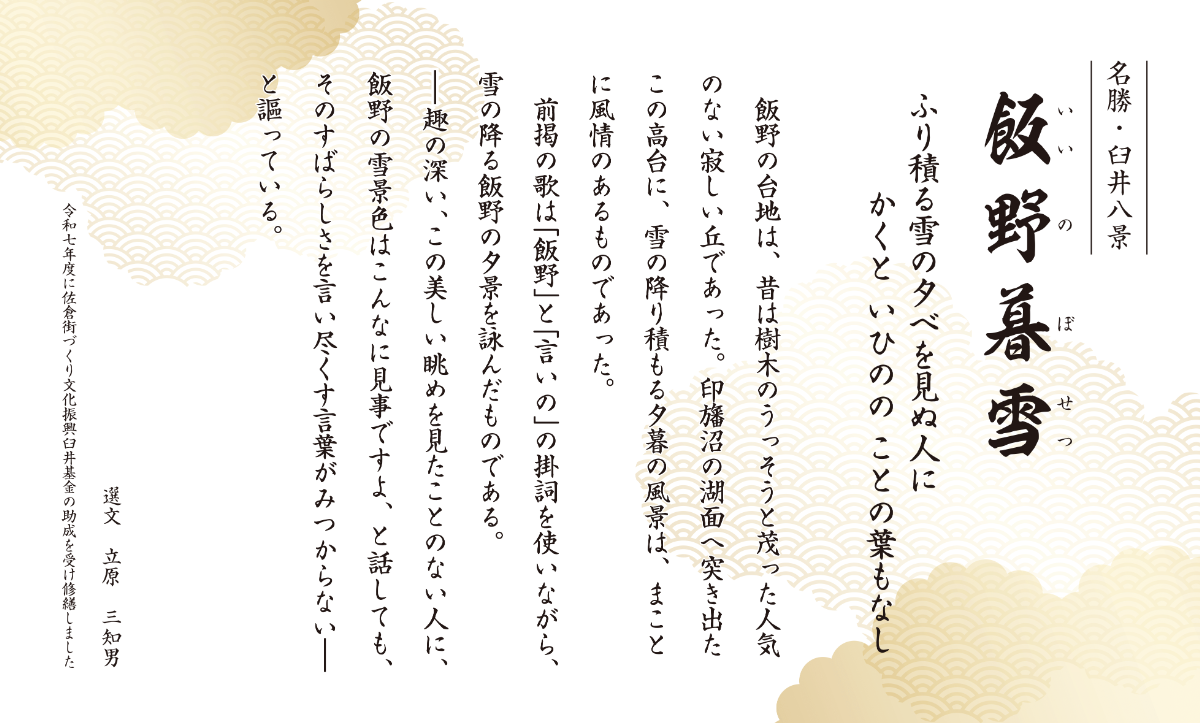 名勝・臼井八景
飯野暮雪
いいのぼせつ
ふり積る雪の夕べを見ぬ人に
かくと いひのの ことの葉もなし
飯野の台地は、昔は樹木のうっそうと茂った人気
のない寂しい丘であった。印旛沼の湖面へ突き出た
この高台に、雪の降り積もる夕暮の風景は、まこと
に風情のあるものであった。
前掲の歌は「飯野」と「言いの」の掛詞を使いながら、
雪の降る飯野の夕景を詠んだものである。
――趣の深い、この美しい眺めを見たことのない人に、
飯野の雪景色はこんなに見事ですよ、と話しても、
そのすばらしさを言い尽くす言葉がみつからない――
と謳っている。
選文 立原 三知男
令和七年度に佐倉街づくり文化振興臼井基金の助成を受け修繕しました